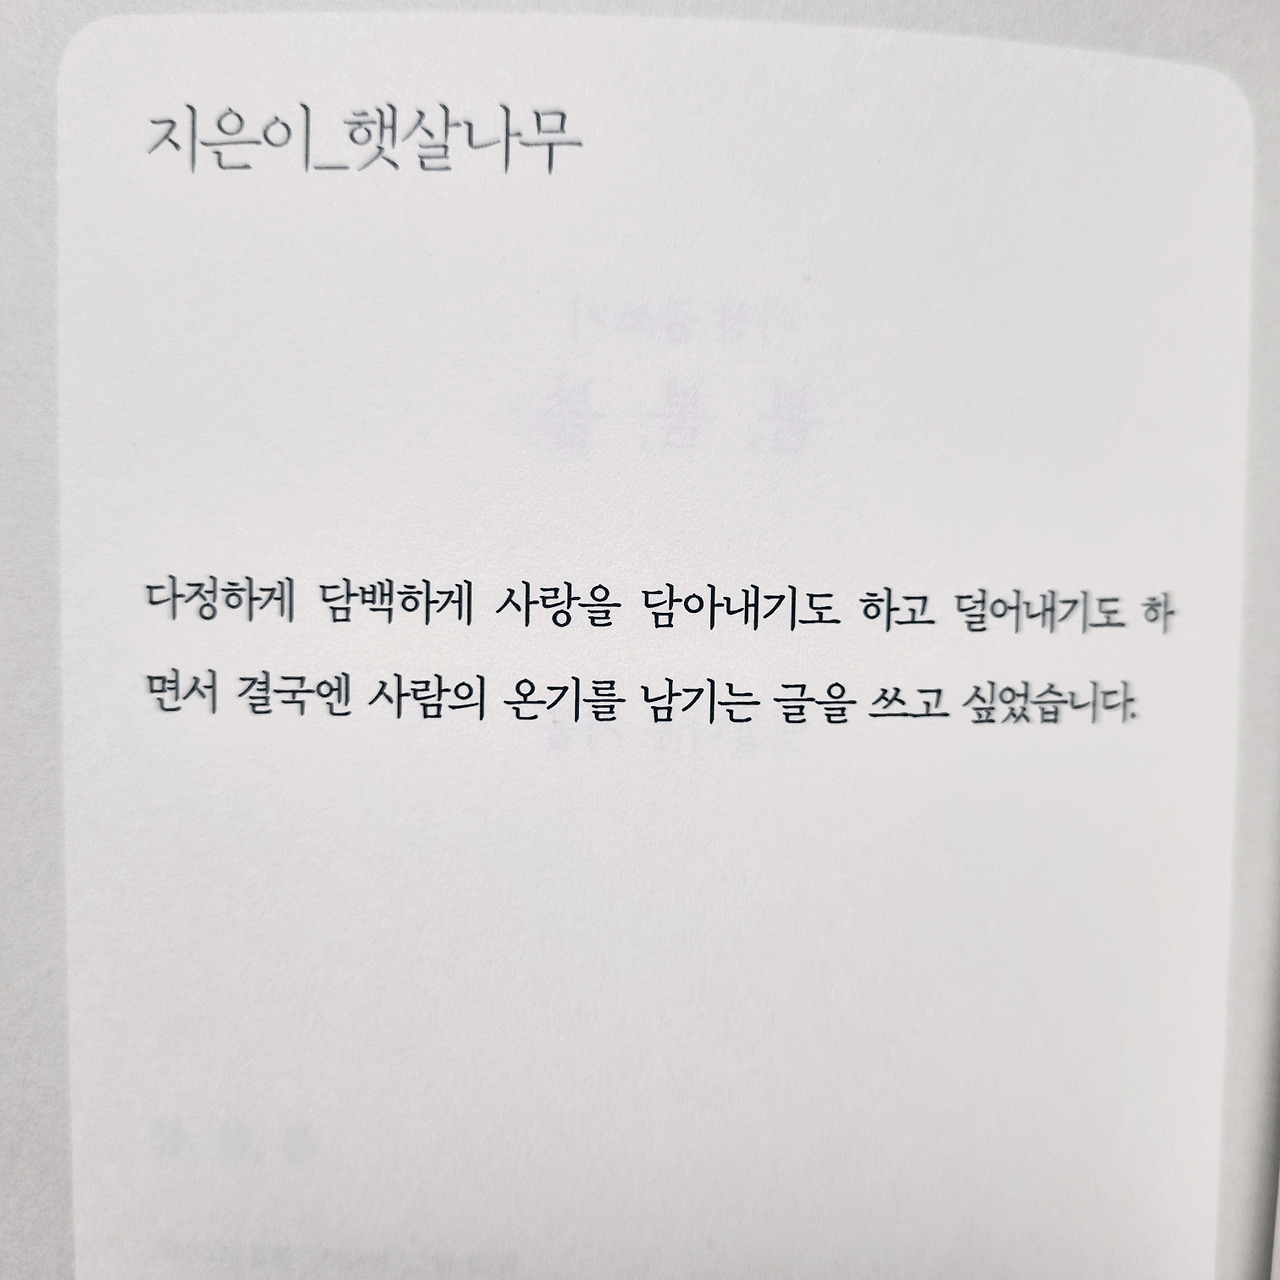 지은이_햇살나무
다정하게 담백하게 사랑을 담아내기도 하고 덜어내기도 하
면서 결국엔 사람의 온기를 남기는 글을 쓰고 싶었습니다.